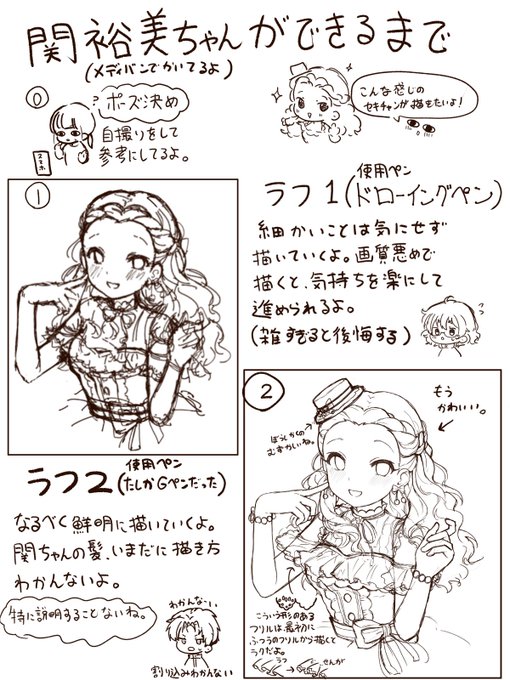 関裕美ちゃんができるまで
(メディバンでかいてるよ)
⓪
ポーズ決め
自撮りをして
参考にしてるよ。
スマホ
こんな感じの
セキチャンが描きたいよ!
①
使用ペン
ラフ1(ドローイングペン)
細かいことは気にせず
描いていくよ。画質悪めで
描くと、気持ちを楽にして
進められるよ。
(雑すぎると後悔する)
②
もう
かわいい。
ぼうしかくの
むずかしいね。
使用ペン
ラフ2(たしかGペンだった)
なるべく鮮明に描いていくよ。
関ちゃんの髪、いまだに描き方
わかんないよ。
特に説明することないね。
わかんない
割り込みわかんない
こういう形のある
フリルは、最初に
ふつうのフリルから描くと
ラクだよ。
ラフ
せんが